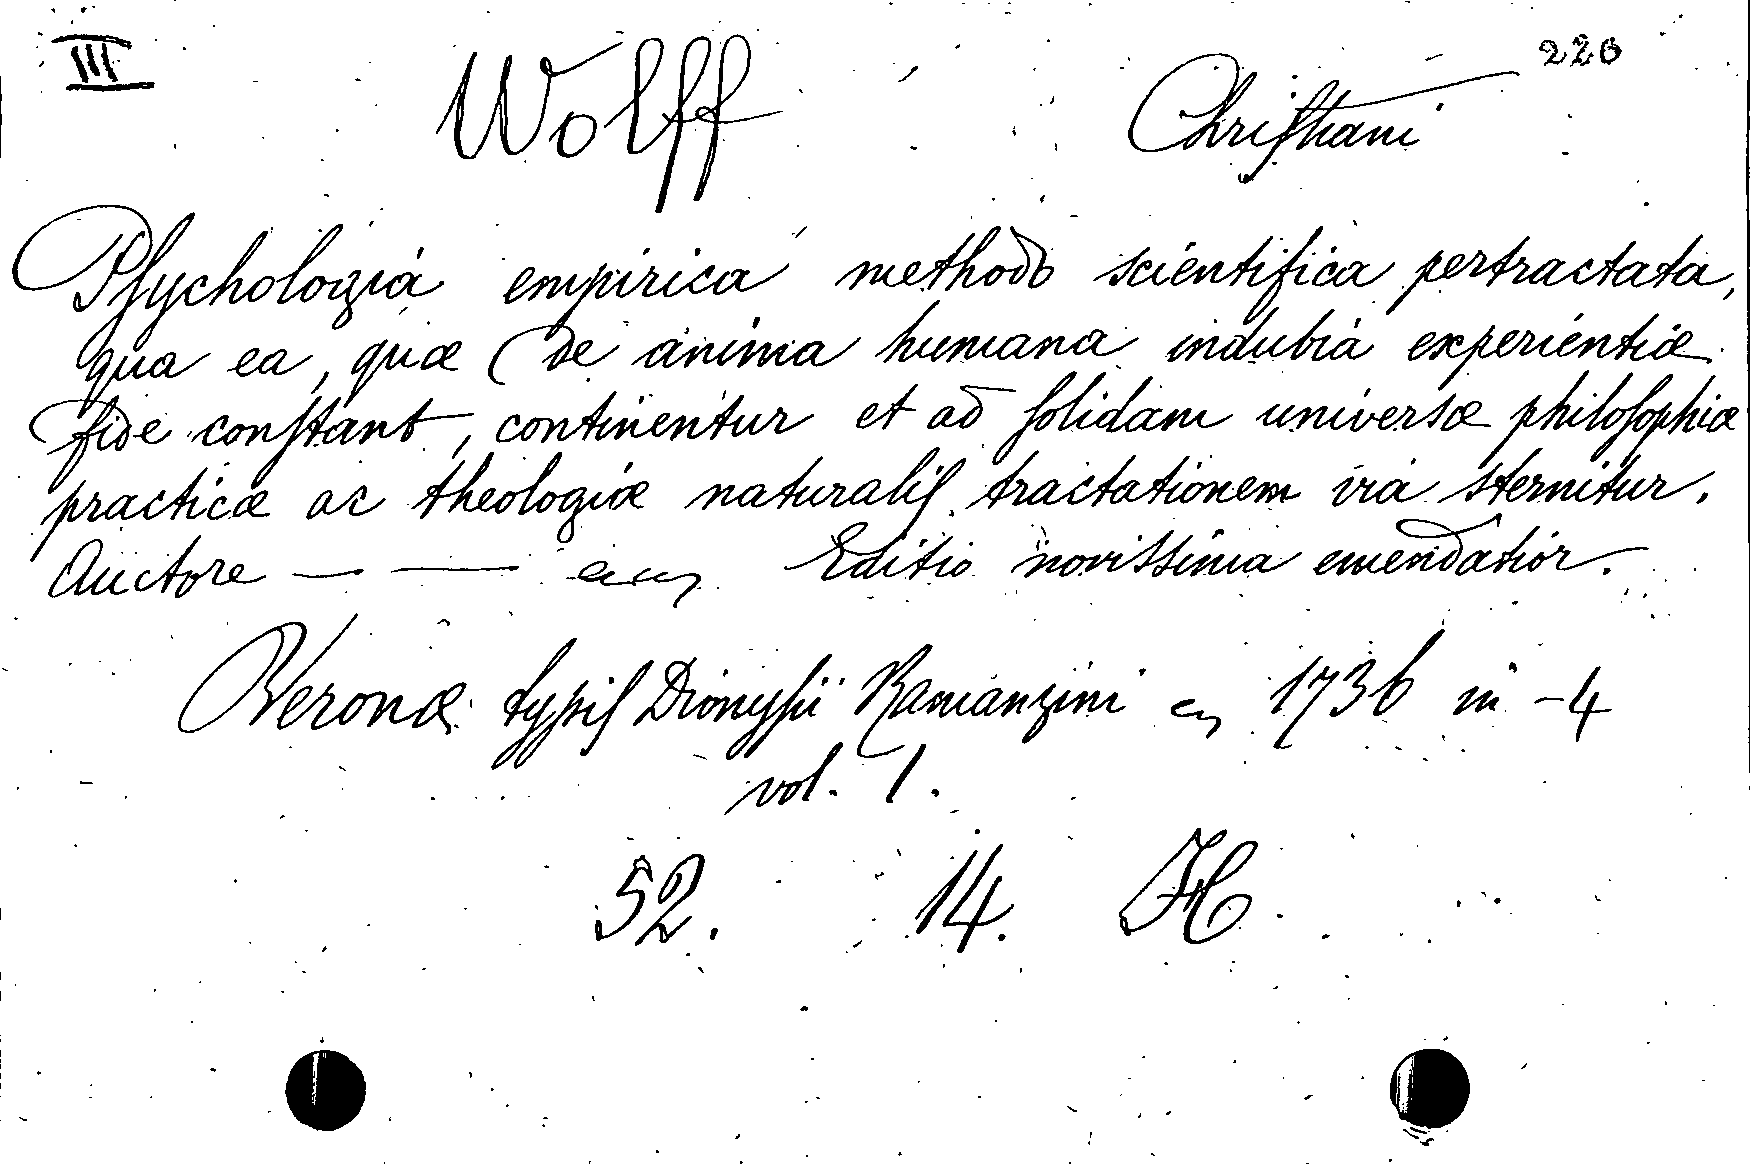 III Wolff Christiani 226
Psychologia empirica methodo scientifica pertractata,
qua ea, quæ de anima humana indubia experientiæ
fide constant, continentur et ad solidam universæ philosophiæ
practicæ ac theologiæ naturalis tractationem via sternitur.
Auctore — — Editio novissima emendatior.
Veronæ typis Dionysii Ramanzini 1736 in -4
vol. 1.
52. 14. H.